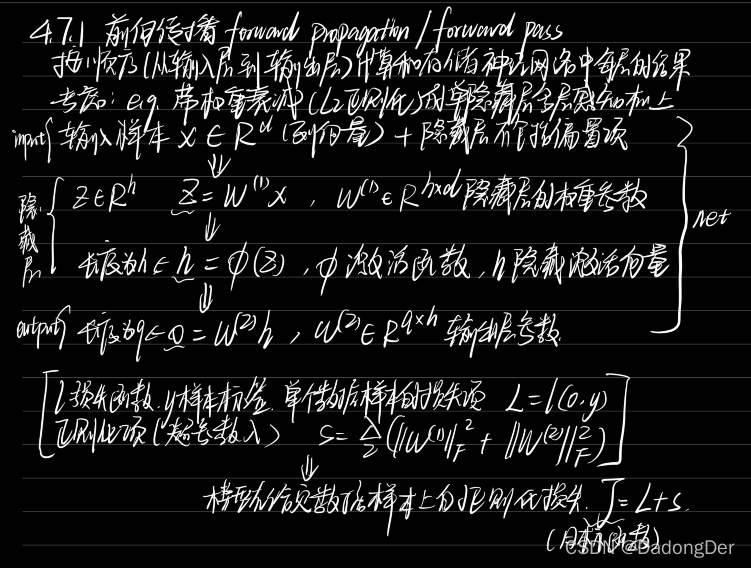 4.7.1 前向传播 forward propagation / forward pass
按顺序(从输入层到输出层)计算和存储神经网络中每层的结果
考虑: e.g. 带权重衰减(L2正则化)的单隐藏层多层感知机上
input{ 输入样本 x∈R^d (列向量) + 隐藏层不包括偏置项
隐藏层 { z∈R^h z = W^(1)x , W^(1)∈R^h×d 隐藏层的权重参数
长度为h ← h = φ(z) , φ 激活函数, h 隐藏激活向量
output{ 长度为q ← o = W^(2)h , W^(2)∈R^q×h 输出层参数
} net
[ l 损失函数. y样本标签. 单个数据样本的损失项 L = l(o,y)
正则化项(超参数λ) s = λ/2 (||W^(1)||_F^2 + ||W^(2)||_F^2) ]
模型在给定数据样本上的正则化损失. J = L + s.
(目标函数)
CSDN @DadongDer